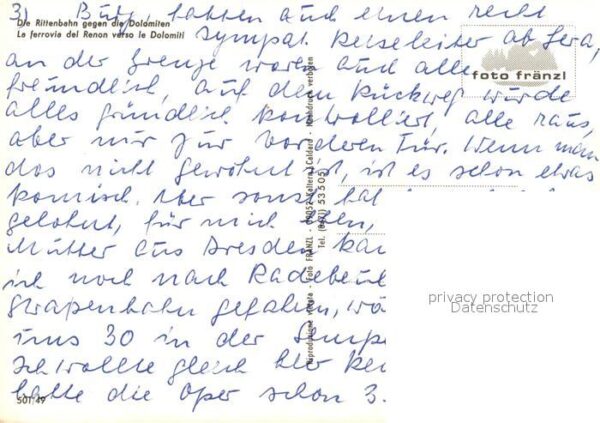 3) Bus, hatten auch einen recht
Die Rittenbahn gegen die Dolomiten
La ferrovia del Renon verso le Dolomiti
sympat. Reiseleiter ab Gera,
an der Grenze waren auch alle
foto fränzl
freundlich, auf dem Rückweg wurde
alles gründlich kontrolliert, alle raus,
aber nur zur vorderen Tür. Wenn man
das nicht gewöhnt ist, ist es schon etwas
komisch. Aber sonst hat
gelohnt, für mich
Mutter aus Dresden
ich noch nach Radebeul
Strapenbahn gefahren,
uns 30 in der
Ich wollte gleich
hatte die Oper schon 3.
riproduzione vietata - Foto FRÄNZL - 39052 Kaltern/Caldaro - Nachdruck verboten
Tel. (0471) 53505
privacy protection
Datenschutz
501/49